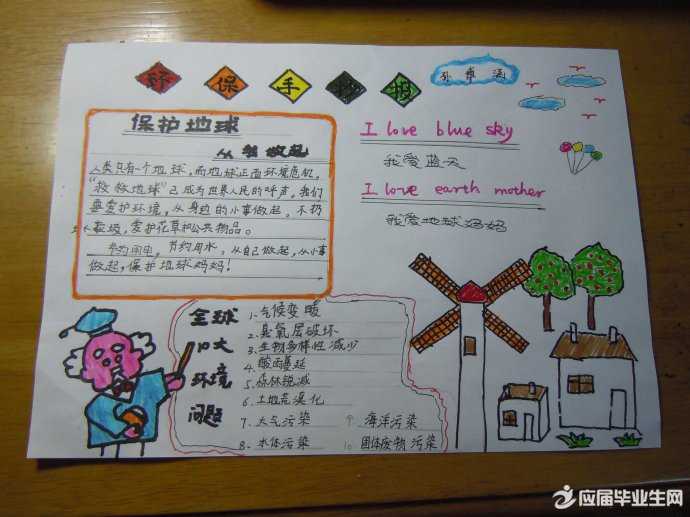 环 保 手 抄 报
孙 卓 涵
保护地球
从我做起
人类只有一个地球,而地球正面环境危机,
“救救地球”已成为世界人民的呼声。我们
要爱护环境,从身边的小事做起。不扔
垃圾,爱护花草和公共物品。
节约用电,节约用水,从自己做起,从小事
做起,保护地球妈妈!
I love blue sky
我爱蓝天
I love earth mother
我爱地球妈妈
全球
10大
环境
问题
1. 气候变暖
2. 臭氧层破坏
3. 生物多样性减少
4. 酸雨蔓延
5. 森林锐减
6. 土地荒漠化
7. 大气污染
8. 水体污染
9. 海洋污染
10. 固体废物污染
应届毕业生网